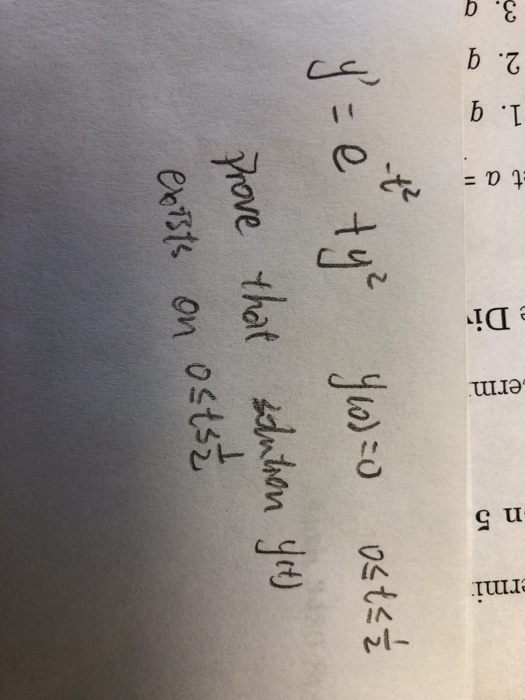 y' = e^{-t^2} + y^2 y(0)=0 0≤t≤1/2
Prove that solution y(t)
exists on 0≤t≤1/2
3. q
2. q
1. q
t a =
Div
erm
n 5
ermi